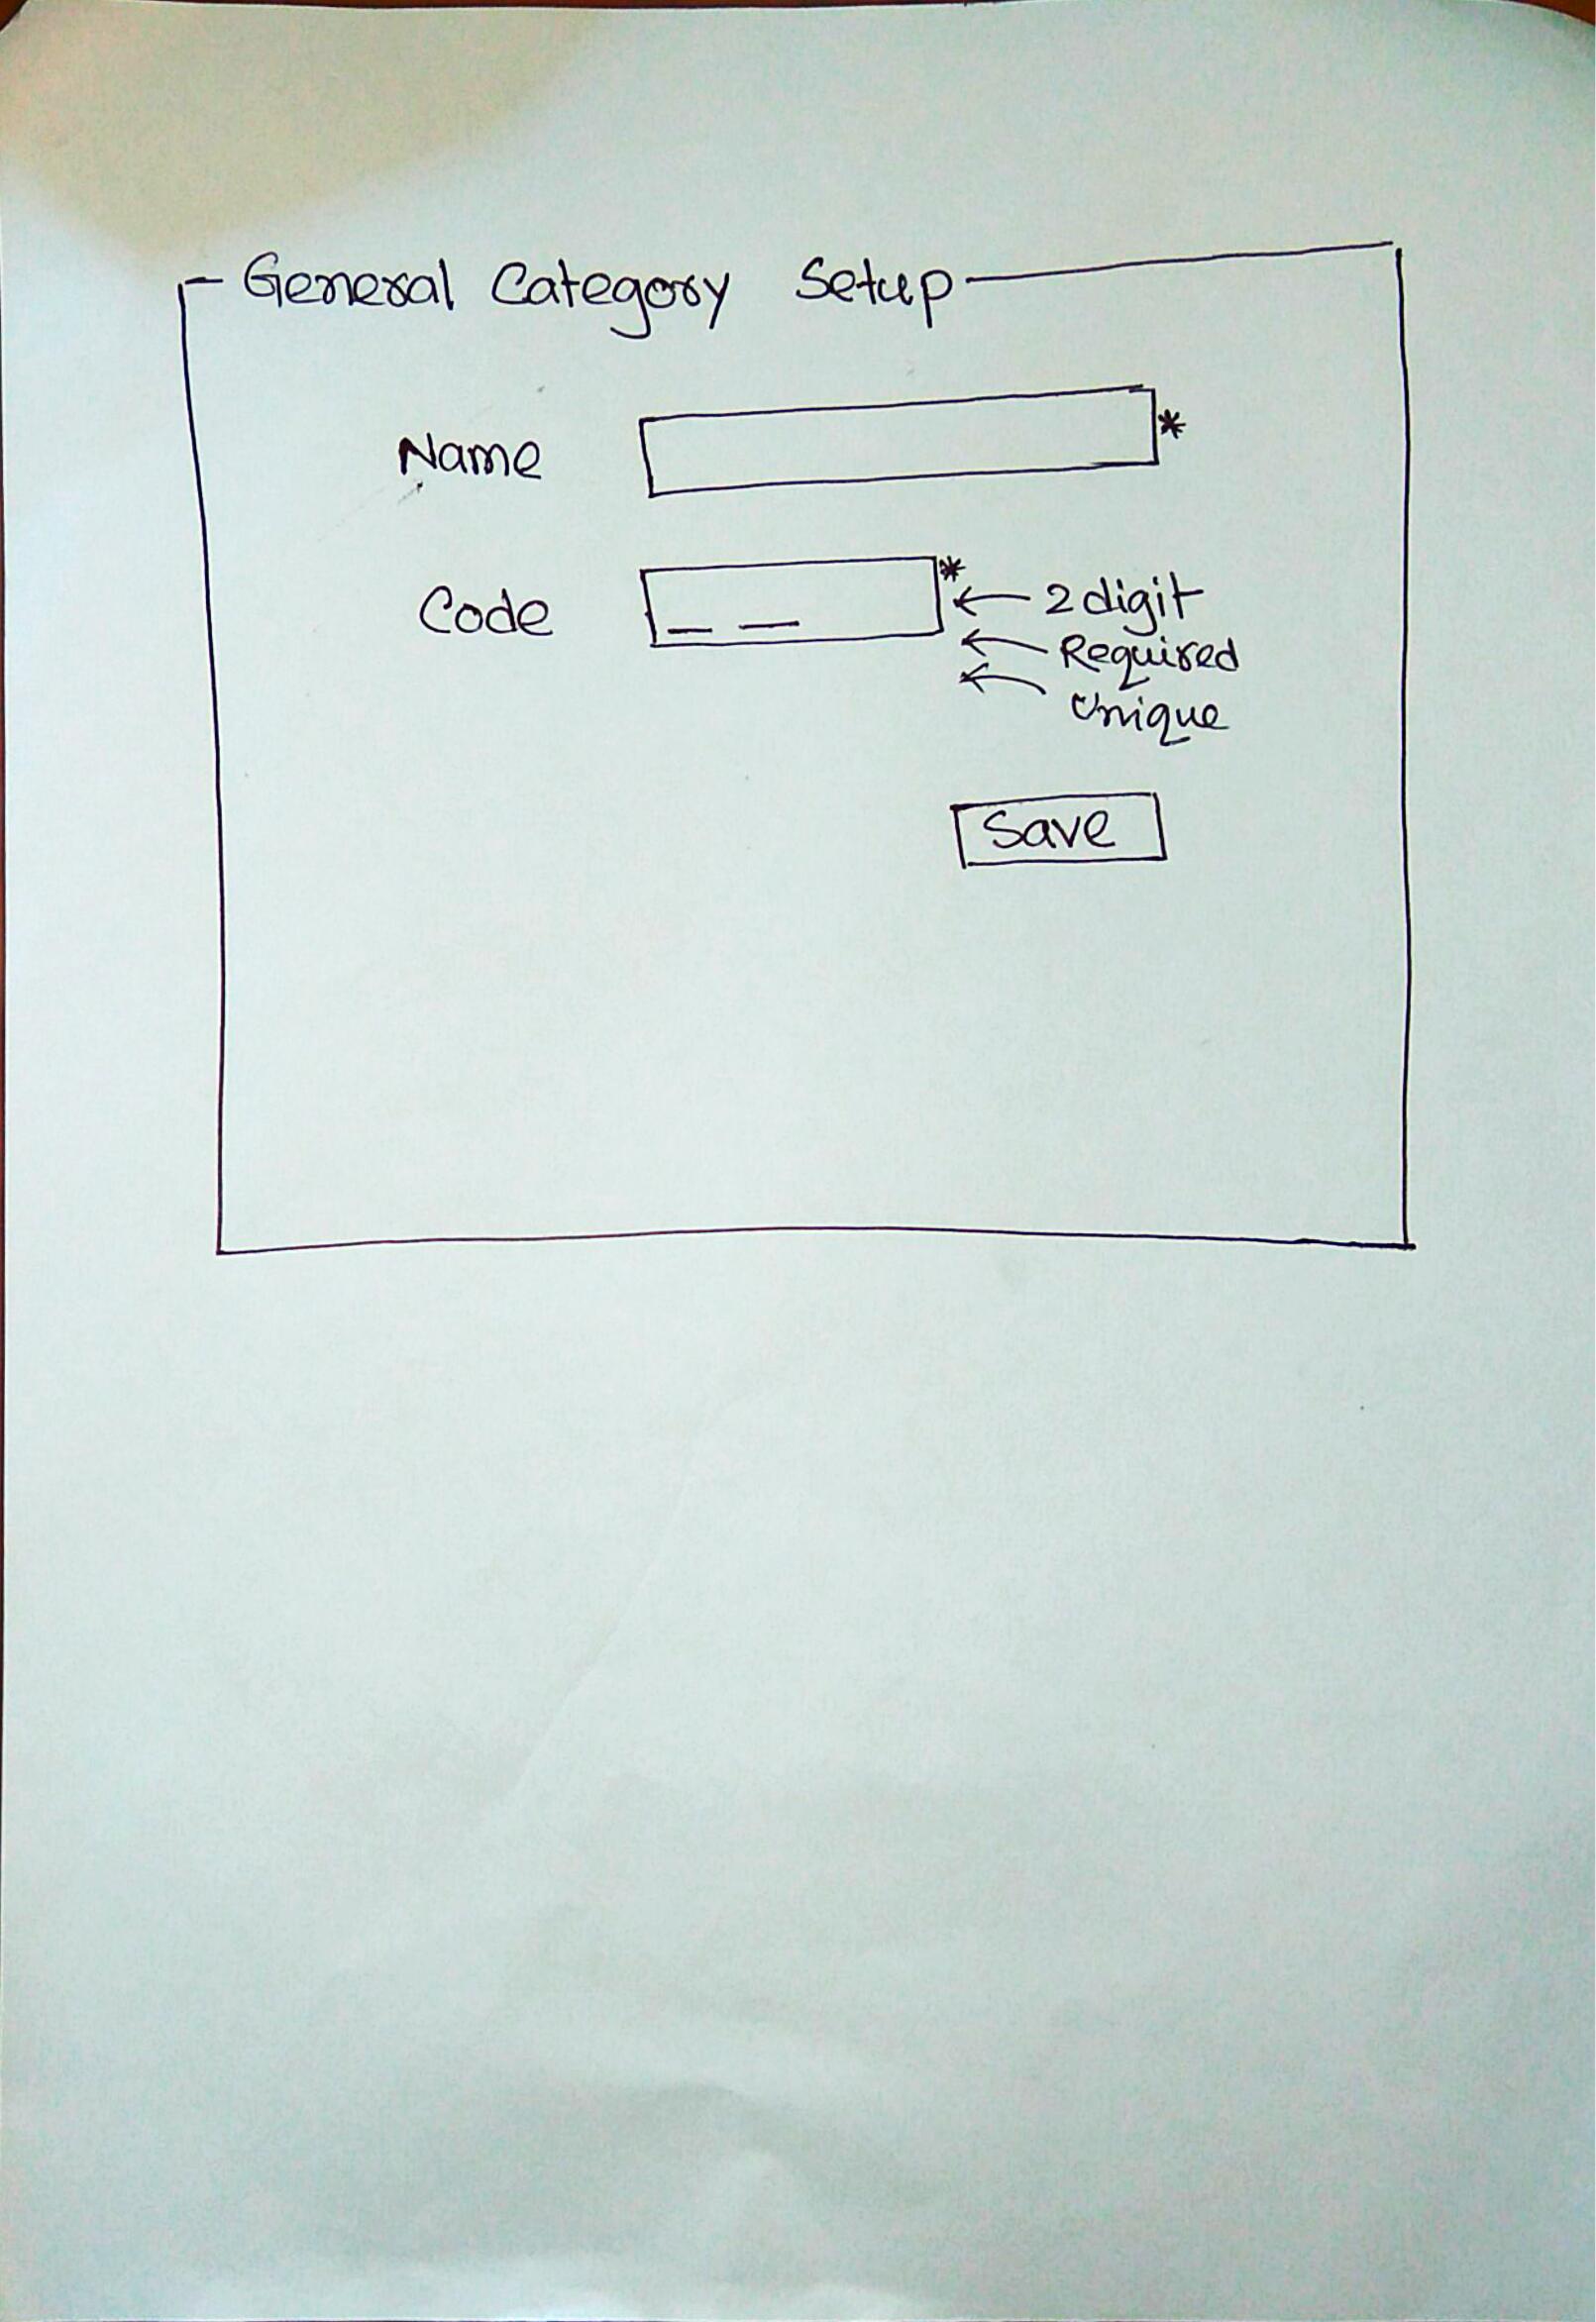 General Category Setup
Name *
Code *
2 digit
Required
Unique
Save